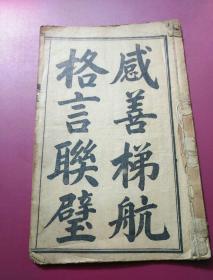 感善梯航
格言聯璧